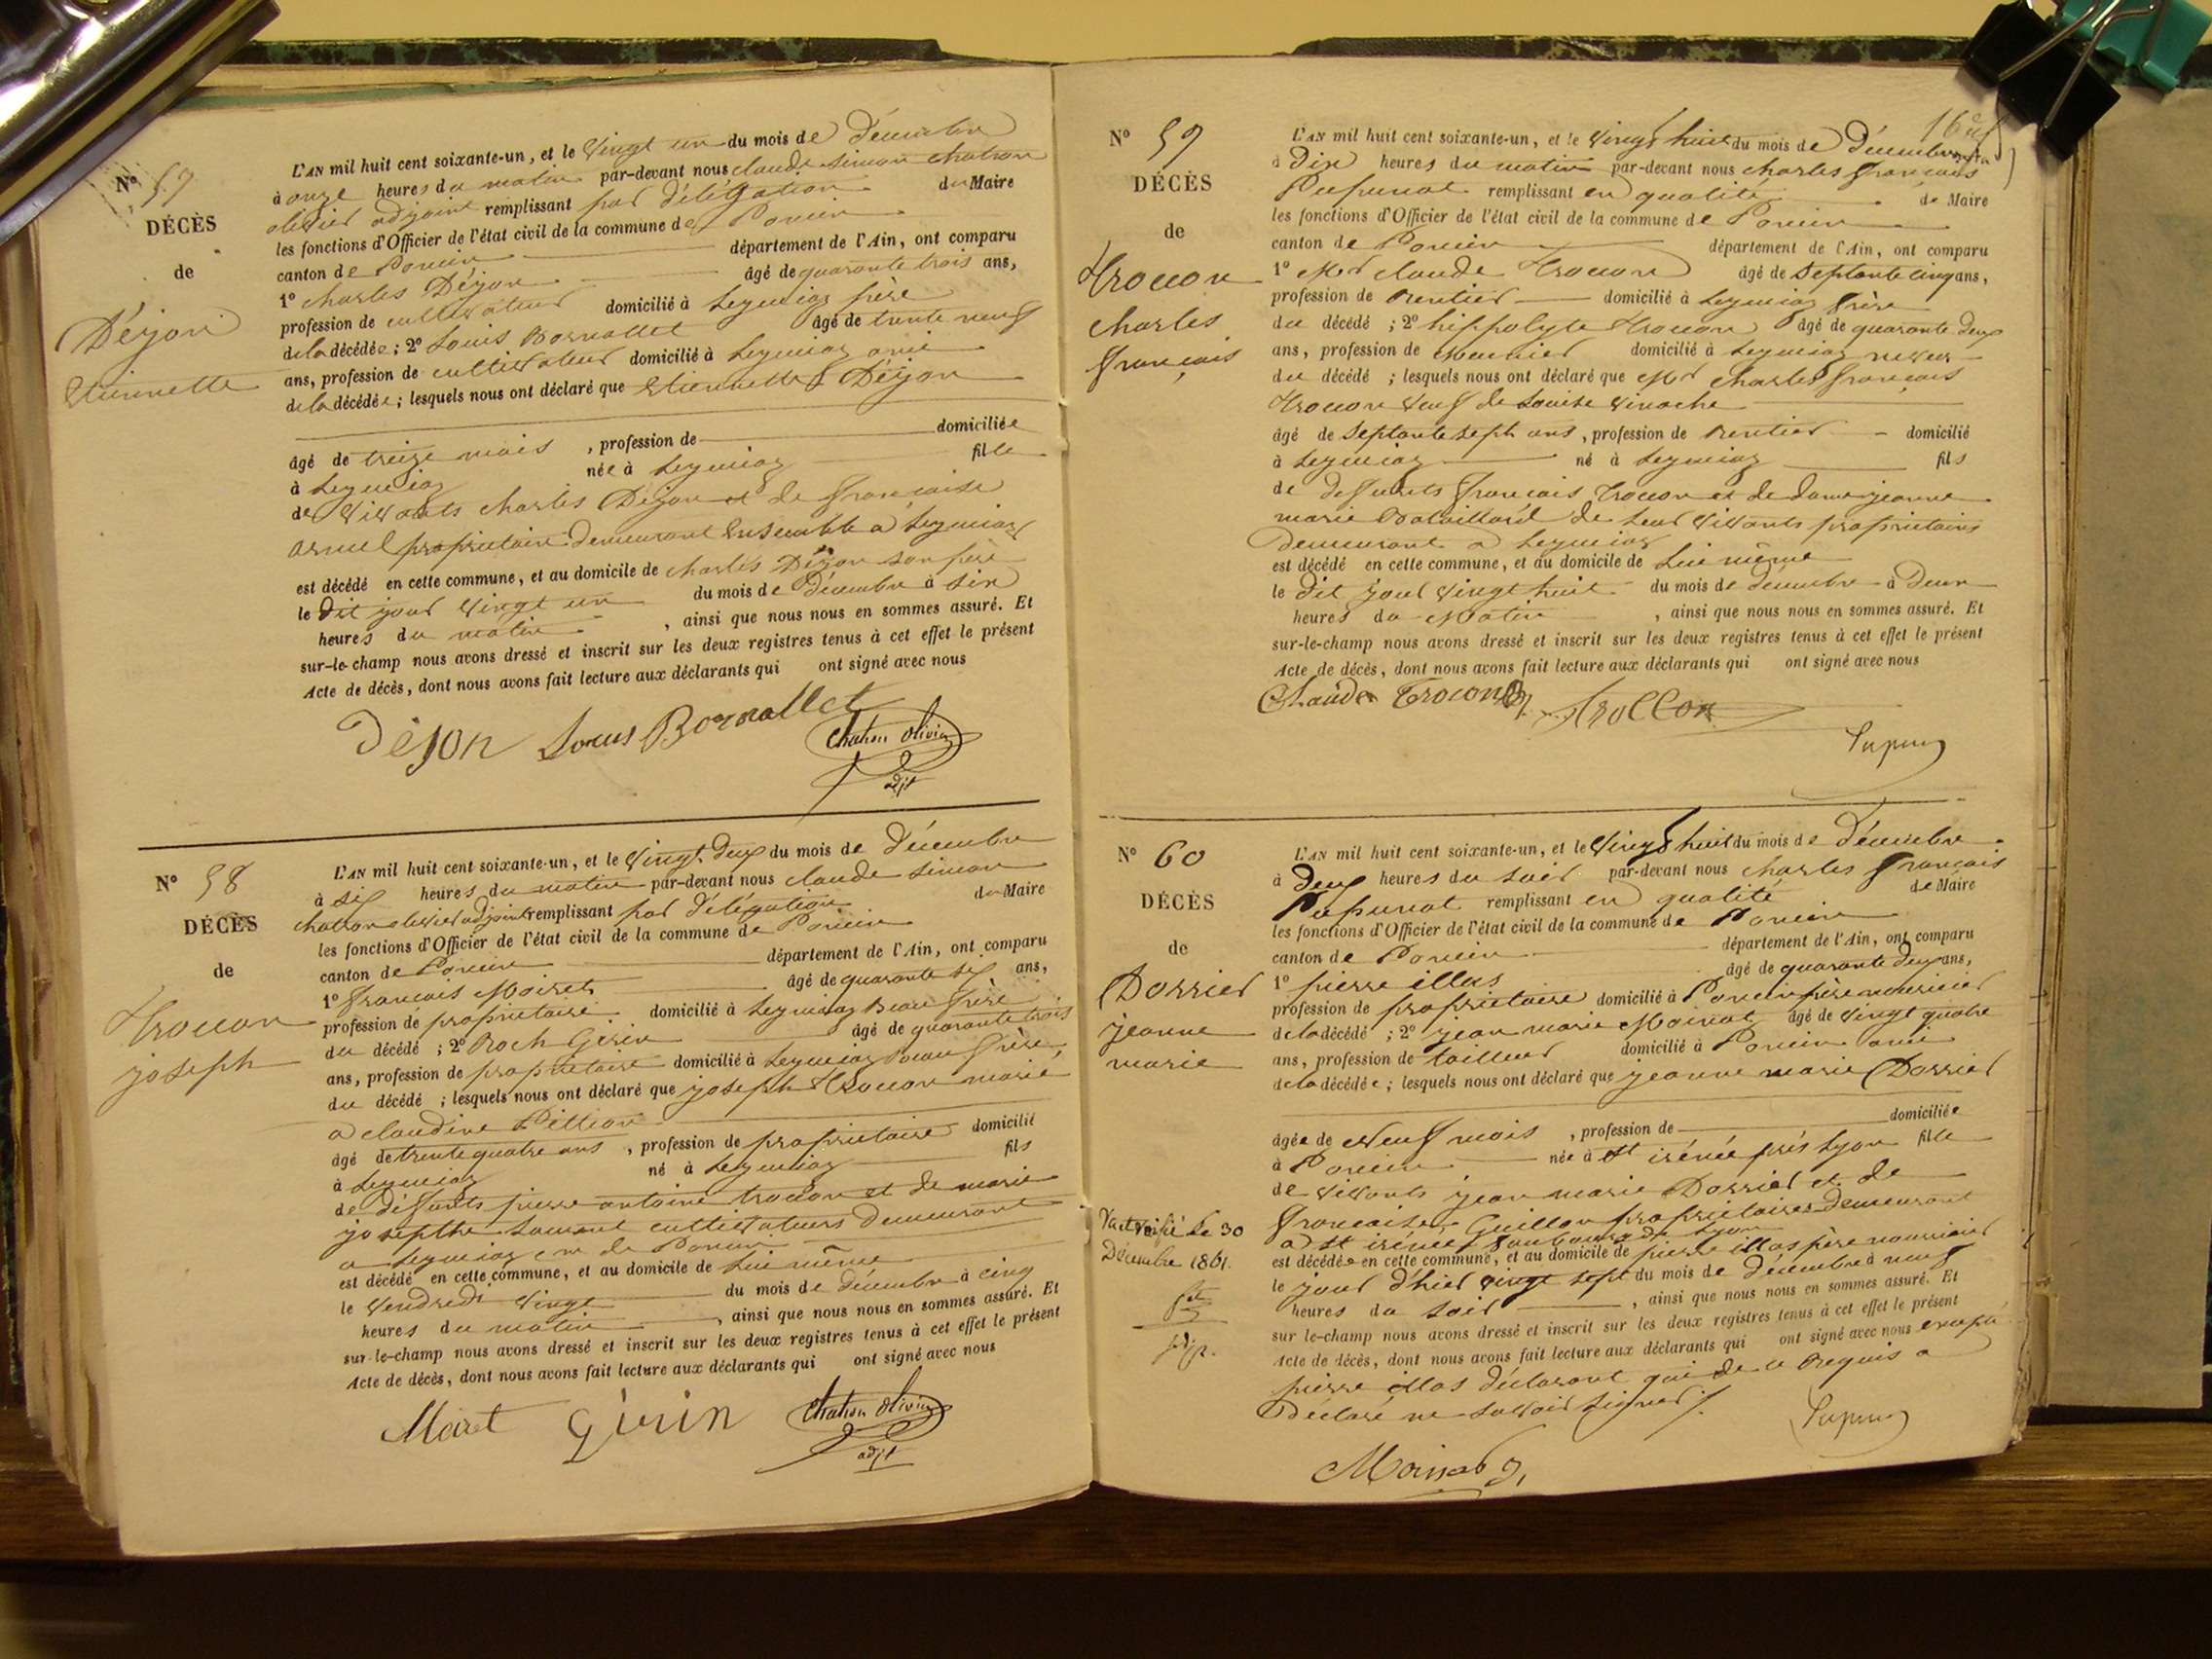 N° 57
DÉCÈS
de
Déjon
Etiennette
L'AN mil huit cent soixante-un, et le vingt un du mois de Décembre
à onze heures du matin par-devant nous claude simon chatron
olivier adjoint remplissant par délégation du Maire
les fonctions d'Officier de l'état civil de la commune de Poncin
canton de Poncin département de l'Ain, ont comparu
1° charles Déjon âgé de quarante trois ans,
profession de cultivateur domicilié à Leymiaz père
de la décédée ; 2° Louis Bornallet âgé de trente neuf
ans, profession de cultivateur domicilié à Leymiaz ami
de la décédée ; lesquels nous ont déclaré que Etiennette Déjon
âgé de treize mois , profession de domiciliée
à Leymiaz née à Leymiaz fille
de vivants charles Déjon et de françoise
propriétaire demeurant Ensemble a Leymiaz
est décédé en cette commune, et au domicile de charles Déjon son père
le dit jour vingt un du mois de Décembre à six
heures du matin , ainsi que nous nous en sommes assuré. Et
sur-le-champ nous avons dressé et inscrit sur les deux registres tenus à cet effet le présent
Acte de décès, dont nous avons fait lecture aux déclarants qui ont signé avec nous
Déjon Louis Bornallet Chatron Olivier
adjt
N° 58
DÉCÈS
de
trocon
joseph
L'AN mil huit cent soixante-un, et le vingt deux du mois de Décembre
à six heures du matin par-devant nous claude simon
chatron olivier adjoint remplissant par délégation du Maire
les fonctions d'Officier de l'état civil de la commune de Poncin
canton de Poncin département de l'Ain, ont comparu
1° françois Moiret âgé de quarante six ans,
profession de propriétaire domicilié à Leymiaz Beau frère
du décédé ; 2° Roch Gérin âgé de quarante trois
ans, profession de propriétaire domicilié à Leymiaz beau frère
du décédé ; lesquels nous ont déclaré que joseph trocon marié
a claudine Pittion
âgé de trente quatre ans , profession de propriétaire domicilié
à Leymiaz né à Leymiaz fils
de défunts pierre antoine trocon et de marie
josepthe cultivateurs demeurant
a Leymiaz cne de Poncin
est décédé en cette commune, et au domicile de Lui même
le vendredi vingt du mois de décembre à cinq
heures du matin , ainsi que nous nous en sommes assuré. Et
sur-le-champ nous avons dressé et inscrit sur les deux registres tenus à cet effet le présent
Acte de décès, dont nous avons fait lecture aux déclarants qui ont signé avec nous
Moiret Gérin Chatron Olivier
adjt
N° 59
DÉCÈS
de
trocon
charles
françois
L'AN mil huit cent soixante-un, et le vingt huit du mois de Décembre
à Dix heures du matin par-devant nous charles françois
Pupunat remplissant en qualité de Maire
les fonctions d'Officier de l'état civil de la commune de Poncin
canton de Poncin département de l'Ain, ont comparu
1° Mr claude trocon âgé de Septante cinq ans,
profession de Rentier domicilié à Leymiaz frère
du décédé ; 2° hippolyte trocon âgé de quarante deux
ans, profession de Meunier domicilié à Leymiaz neveu
du décédé ; lesquels nous ont déclaré que Mr charles françois
trocon veuf de Louise vinoche
âgé de Septante sept ans , profession de Rentier domicilié
à Leymiaz né à Leymiaz fils
de défunts françois trocon et de dame jeanne
marie Bataillard de leur vivants propriétaires
demeurant a Leymiaz
est décédé en cette commune, et au domicile de Lui même
le dit jour vingt huit du mois de décembre à Deux
heures du Matin , ainsi que nous nous en sommes assuré. Et
sur-le-champ nous avons dressé et inscrit sur les deux registres tenus à cet effet le présent
Acte de décès, dont nous avons fait lecture aux déclarants qui ont signé avec nous
Claude Trocon trocon
N° 60
DÉCÈS
de
Dorrier
jeanne
marie
Vu et vérifié le 30
Décembre 1861.
L'AN mil huit cent soixante-un, et le vingt huit du mois de Décembre
à Deux heures du soir par-devant nous charles françois
Pupunat remplissant en qualité de Maire
les fonctions d'Officier de l'état civil de la commune de Poncin
canton de Poncin département de l'Ain, ont comparu
1° pierre illas âgé de quarante deux ans,
profession de propriétaire domicilié à Poncin père nourricier
de la décédé ; 2° jean marie Moinat âgé de vingt quatre
ans, profession de tailleur domicilié à Poncin ami
de la décédée ; lesquels nous ont déclaré que jeanne marie Dorrier
âgée de Neuf mois , profession de domiciliée
à Poncin née à St irénée près Lyon fille
de vivants jean marie Dorrier et de
françoise Guillon propriétaires demeurant
a St irénée faubourg de Lyon
est décédée en cette commune, et au domicile de pierre illas père nourricier
le jour d'hier vingt sept du mois de décembre à neuf
heures du soir , ainsi que nous nous en sommes assuré. Et
sur le-champ nous avons dressé et inscrit sur les deux registres tenus à cet effet le présent
Acte de décès, dont nous avons fait lecture aux déclarants qui ont signé avec nous excepté
pierre illas déclarant qui de ce Requis a
Déclaré ne savoir signer